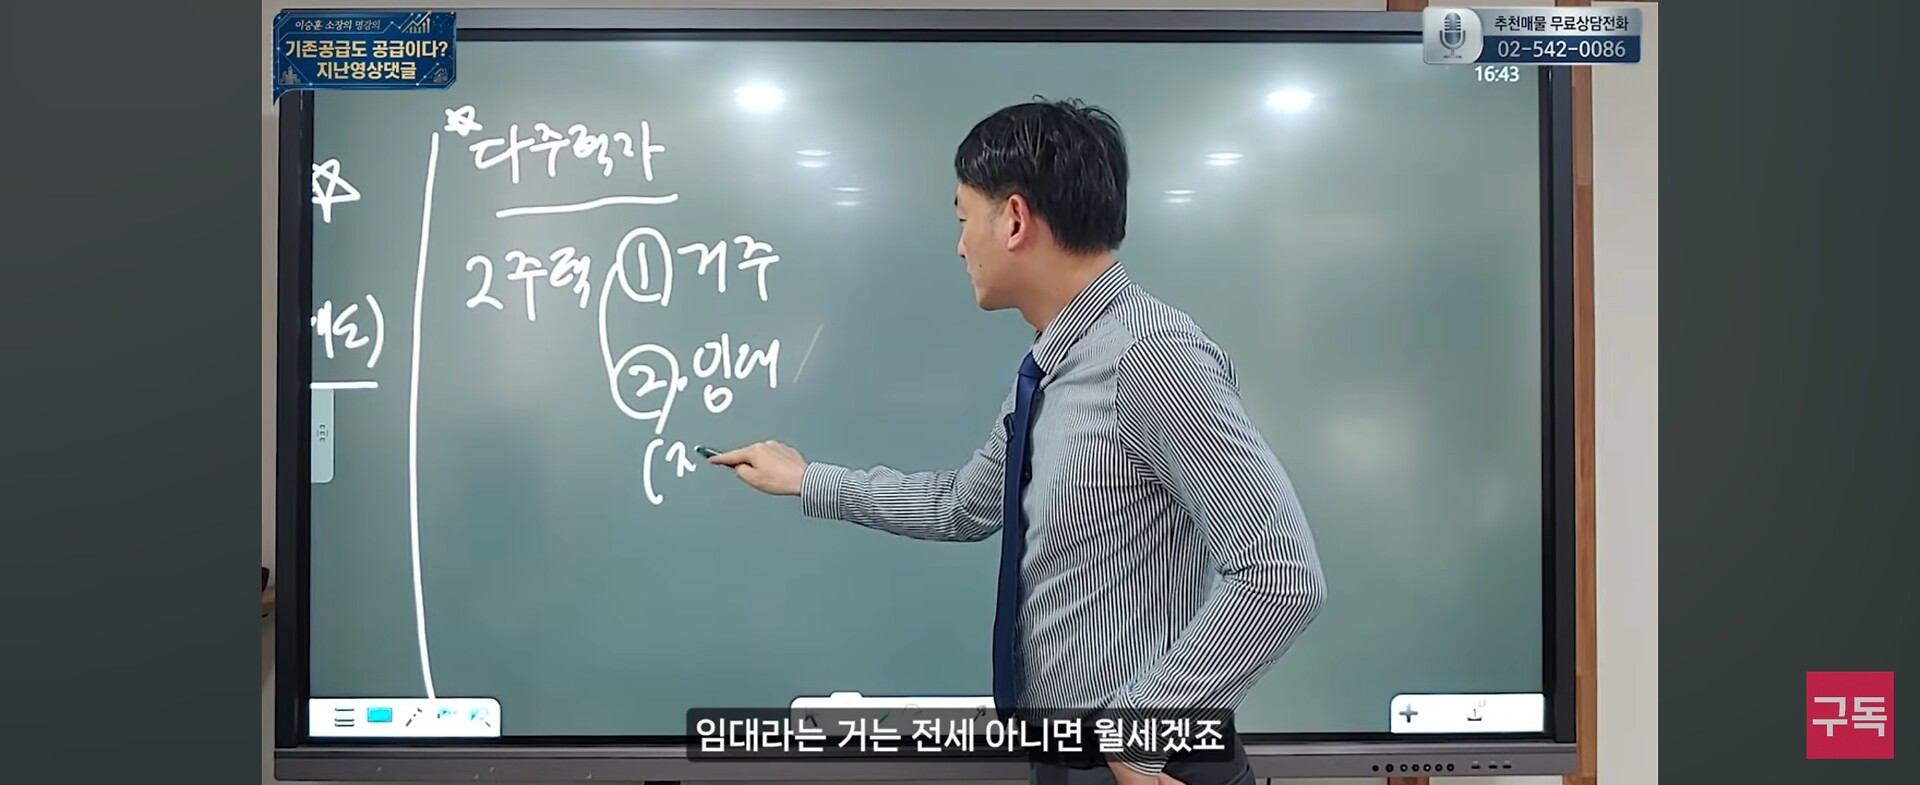 이승훈 소장의 명강의
기존공급도 공급이다?
지난영상댓글
추천매물 무료상담전화
02-542-0086
16:43
다주택자
2주택 ① 거주
② 임대
임대라는 거는 전세 아니면 월세겠죠
구독